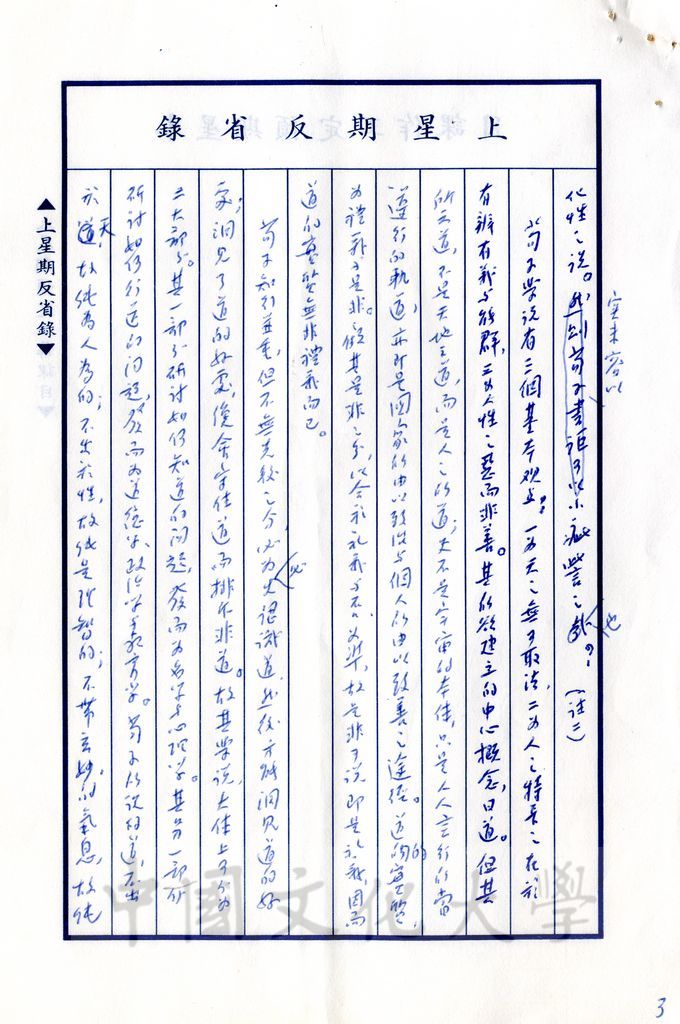 上星期反省錄
▲上星期反省錄▼
實未容以
化性之說。然則荀子書詎可以小疵訾之哉?(註二)
荀子學說有三個基本觀點:一為天之無可取法,二為人之特長之在於
有辨有義與能群,三為人性之惡而非善。其所欲建立的中心概念,曰道。但其
所云道,不是天地之道,而是人之所道;又不是宇宙的本體,只是人人言行的當
遵行的軌道,亦即是國家所由以致治與個人所由以致善之途徑。道的實質,
為禮義與是非。故其是非之分,以合於禮義與否為準,故是非可說即是禮義,因而
道的實質無非禮義而已。
荀子知行並重,但不無先後之分,必先認識道,然後方能洞見道的好
處;洞見了道的好處,後會守住道而排斥非道。故其學說,大體上可分為
二大部分。其一部分研討如何知道的問題,發而為名學與心理學。其另一部分
研討如何行道的問題,發而為道德學、政治學與教育學。荀子所說的道,不出
於天道,故純為人為的;不出於性,故純是理智的;不帶玄妙的氣息,故純
中國文化大學
3